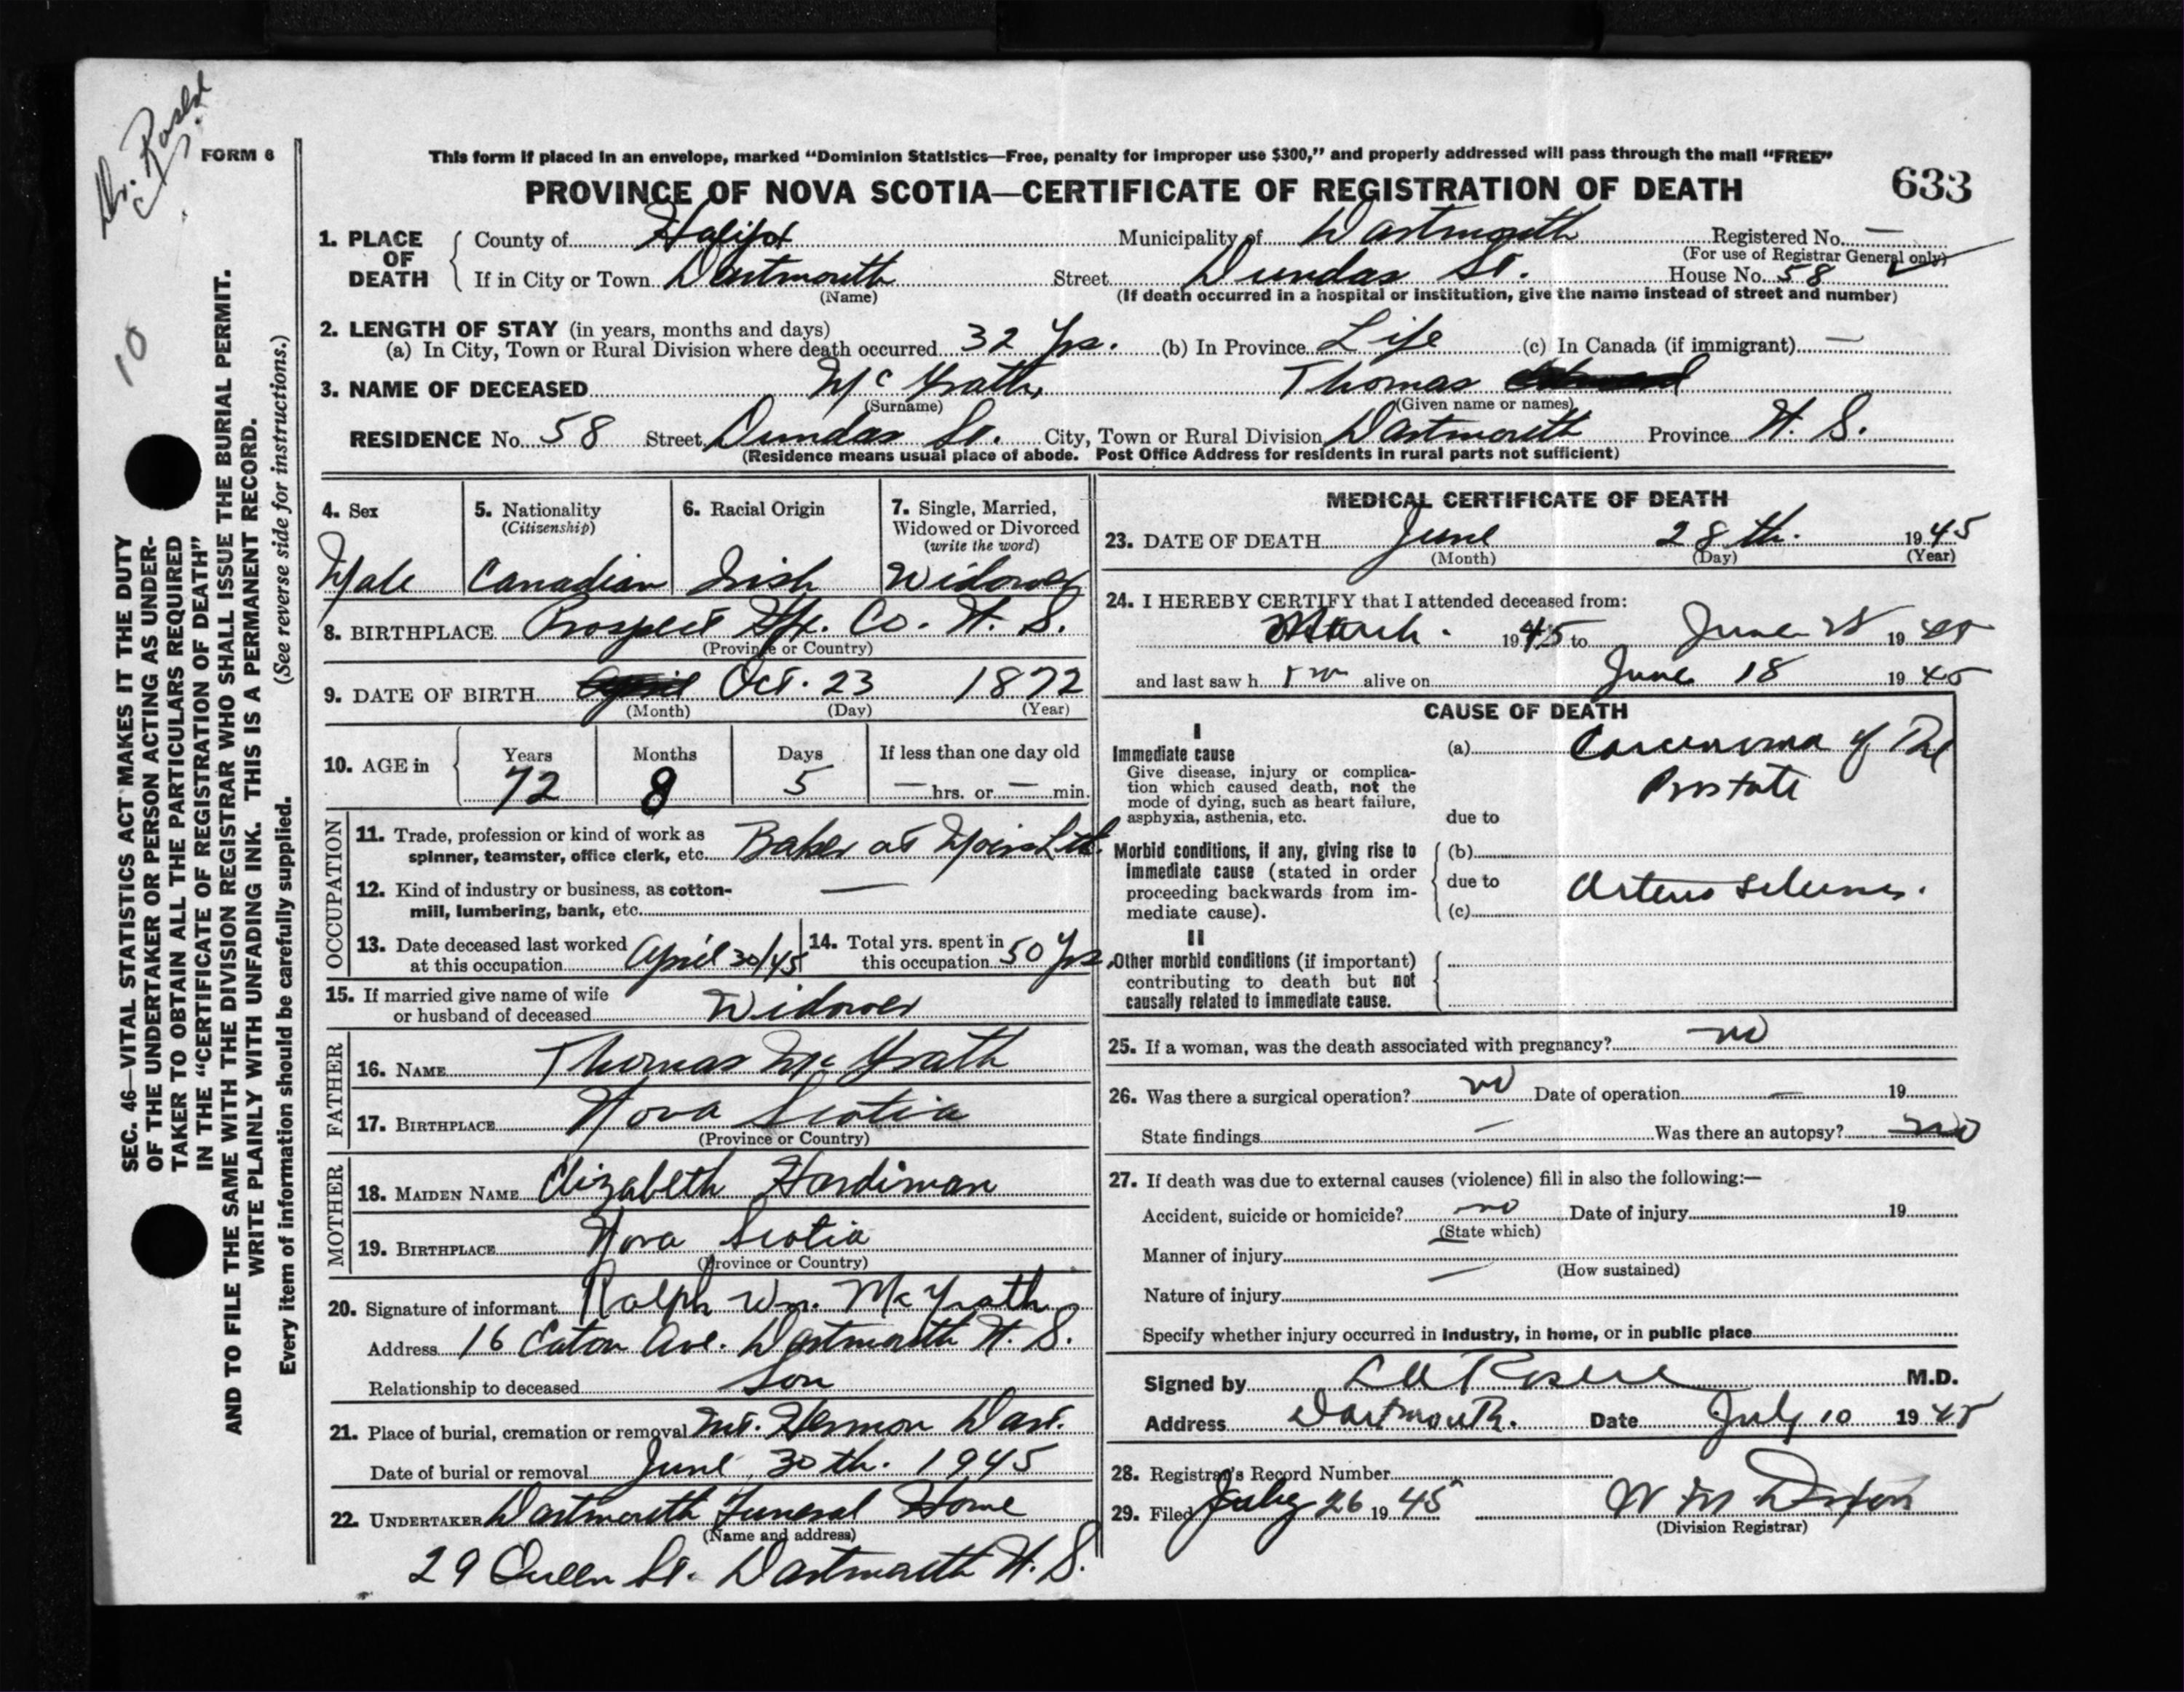 Dr. Rosere
FORM 6
This form if placed in an envelope, marked "Dominion Statistics—Free, penalty for improper use $300," and properly addressed will pass through the mail "FREE"
PROVINCE OF NOVA SCOTIA—CERTIFICATE OF REGISTRATION OF DEATH
633
1. PLACE OF DEATH County of Halifax Municipality of Dartmouth Registered No. —
(For use of Registrar General only)
If in City or Town Dartmouth Street Dundas St. House No. 58
(Name) (If death occurred in a hospital or institution, give the name instead of street and number)
2. LENGTH OF STAY (in years, months and days)
(a) In City, Town or Rural Division where death occurred 32 Yrs. (b) In Province Life (c) In Canada (if immigrant) —
3. NAME OF DECEASED McGrath, Thomas
(Surname) (Given name or names)
RESIDENCE No. 58 Street Dundas St. City, Town or Rural Division Dartmouth Province N. S.
(Residence means usual place of abode. Post Office Address for residents in rural parts not sufficient)
10
SEC. 46—VITAL STATISTICS ACT MAKES IT THE DUTY
OF THE UNDERTAKER OR PERSON ACTING AS UNDER-
TAKER TO OBTAIN ALL THE PARTICULARS REQUIRED
IN THE "CERTIFICATE OF REGISTRATION OF DEATH"
AND TO FILE THE SAME WITH THE DIVISION REGISTRAR WHO SHALL ISSUE THE BURIAL PERMIT.
WRITE PLAINLY WITH UNFADING INK. THIS IS A PERMANENT RECORD.
Every item of information should be carefully supplied. (See reverse side for instructions.)
4. Sex 5. Nationality (Citizenship) 6. Racial Origin 7. Single, Married, Widowed or Divorced (write the word)
Male Canadian Irish Widower
8. BIRTHPLACE Prospect Hfx. Co. N. S.
(Province or Country)
9. DATE OF BIRTH April Oct. 23 1872
(Month) (Day) (Year)
10. AGE in Years Months Days If less than one day old
72 8 5 — hrs. or — min.
OCCUPATION
11. Trade, profession or kind of work as
spinner, teamster, office clerk, etc. Baker at Moirs Ltd.
12. Kind of industry or business, as cotton-
mill, lumbering, bank, etc. —
13. Date deceased last worked at this occupation April 30/45 14. Total yrs. spent in this occupation 50 Yrs.
15. If married give name of wife
or husband of deceased Widower
FATHER
16. NAME Thomas McGrath
17. BIRTHPLACE Nova Scotia
(Province or Country)
MOTHER
18. MAIDEN NAME Elizabeth Hardiman
19. BIRTHPLACE Nova Scotia
(Province or Country)
20. Signature of informant Ralph Wm. McGrath
Address 16 Eaton Ave. Dartmouth N. S.
Relationship to deceased Son
21. Place of burial, cremation or removal Mt. Hermon Dart.
Date of burial or removal June 30th. 1945
22. UNDERTAKER Dartmouth Funeral Home
(Name and address)
29 Queen St. Dartmouth N. S.
MEDICAL CERTIFICATE OF DEATH
23. DATE OF DEATH June 28th. 1945
(Month) (Day) (Year)
24. I HEREBY CERTIFY that I attended deceased from:
March 1945 to June 28 1945
and last saw h im alive on June 18 1945
CAUSE OF DEATH
I
Immediate cause (a) Carcinoma of the
Prostate
Give disease, injury or complica-
tion which caused death, not the
mode of dying, such as heart failure,
asphyxia, asthenia, etc. due to
Morbid conditions, if any, giving rise to (b)
immediate cause (stated in order
proceeding backwards from im- due to Arterio sclerosis.
mediate cause). (c)
II
Other morbid conditions (if important)
contributing to death but not
causally related to immediate cause.
25. If a woman, was the death associated with pregnancy? no
26. Was there a surgical operation? no Date of operation — 19
State findings — Was there an autopsy? no
27. If death was due to external causes (violence) fill in also the following:—
Accident, suicide or homicide? no Date of injury 19
(State which)
Manner of injury
(How sustained)
Nature of injury —
Specify whether injury occurred in industry, in home, or in public place
Signed by M.D.
Address Dartmouth. Date July 10 1945
28. Registrar's Record Number
29. Filed July 26 1945 W M Dixon
(Division Registrar)